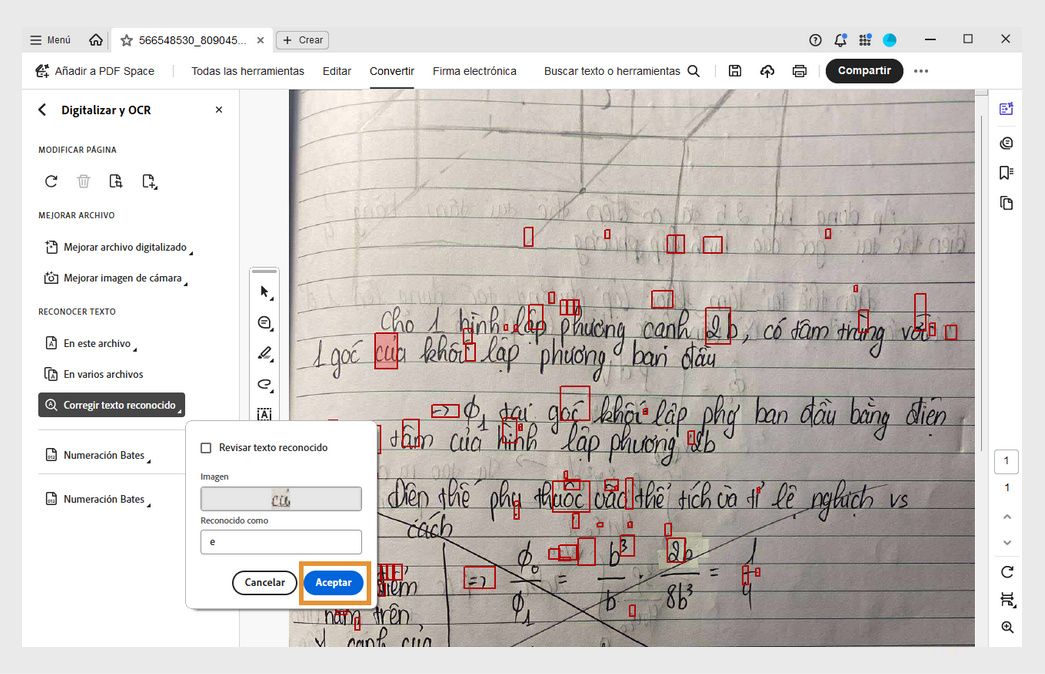 Menú
566548530_809045...
Crear
Añadir a PDF Space
Todas las herramientas
Editar
Convertir
Firma electrónica
Buscar texto o herramientas
Compartir
Digitalizar y OCR
MODIFICAR PÁGINA
MEJORAR ARCHIVO
Mejorar archivo digitalizado
Mejorar imagen de cámara
RECONOCER TEXTO
En este archivo
En varios archivos
Corregir texto reconocido
Numeración Bates
Numeración Bates
Revisar texto reconocido
Imagen
Reconocido como
e
Cancelar
Aceptar
Cho 1 hình lập phương canh 2b, có tâm trùng với
1 goc của khối lập phương ban đầu
=> ϕ₁ tại goc khối lập phg ban đầu bằng điện
tâm của hình lập phương 2b
Điện thế phụ thuộc vào thể tích và tỉ lệ nghich vs
cách
=> ϕ₀/ϕ₁ = b³/b · 2b/8b³ = 1/4
điểm
nằm trên
canh của
1
1